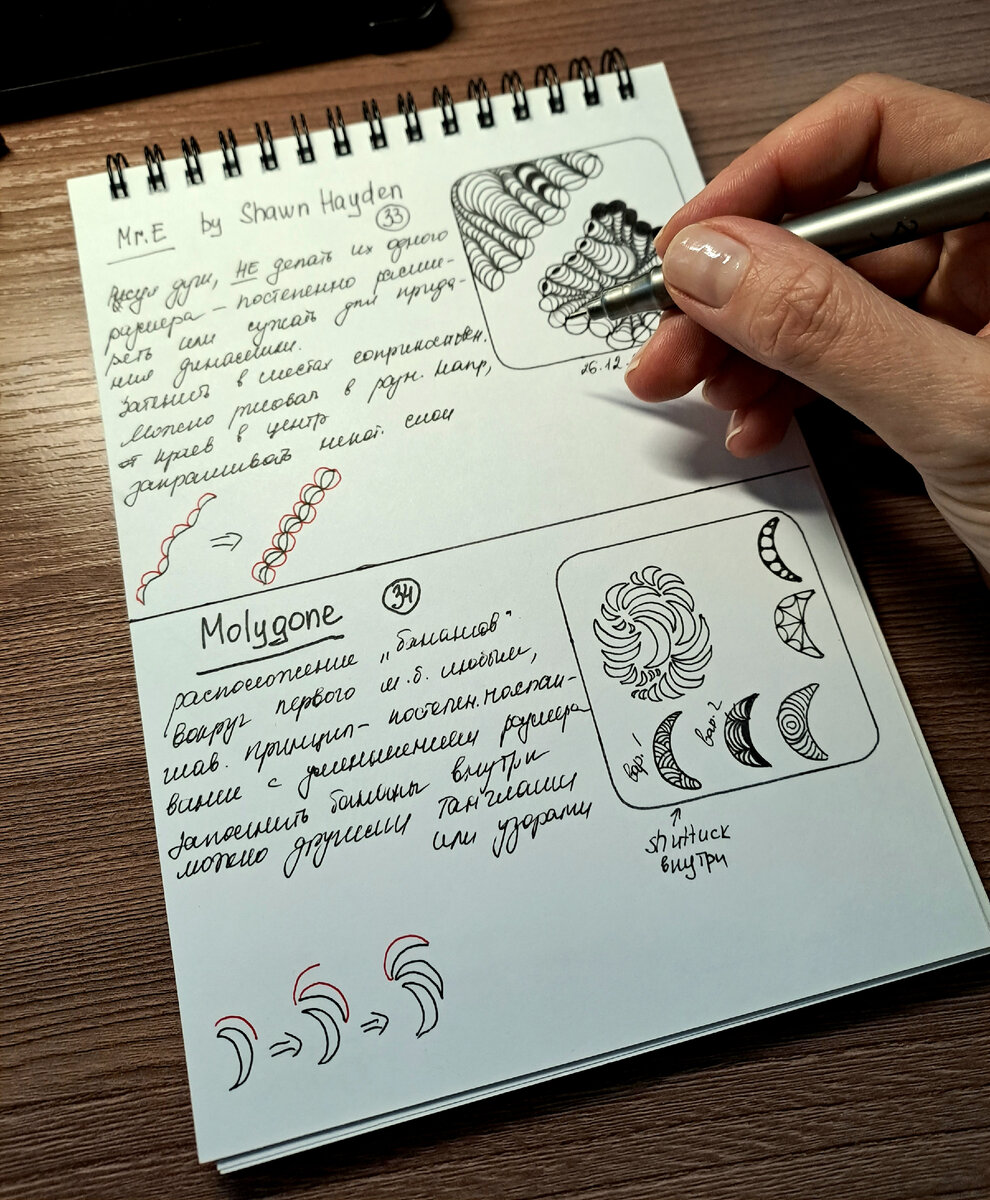 Mr.E by Shawn Hayden
33
Рисуя дуги, НЕ делать их одного
размера – постепенно расши-
рять или сужать для прида-
ния динамики.
Затенить в местах соприкосновен.
Можно рисовать в разн. напр,
от краев в центр
закрашивать некот. слои
26.12.
Molygone 34
расположение „бананов"
вокруг первого м.б. любым,
глав. принцип – постепен. наслаи-
вание с уменьшением размера
Заполнить бананы внутри
можно другими танглами
или узорами
вар. 1
вар. 2
shattuck
внутри